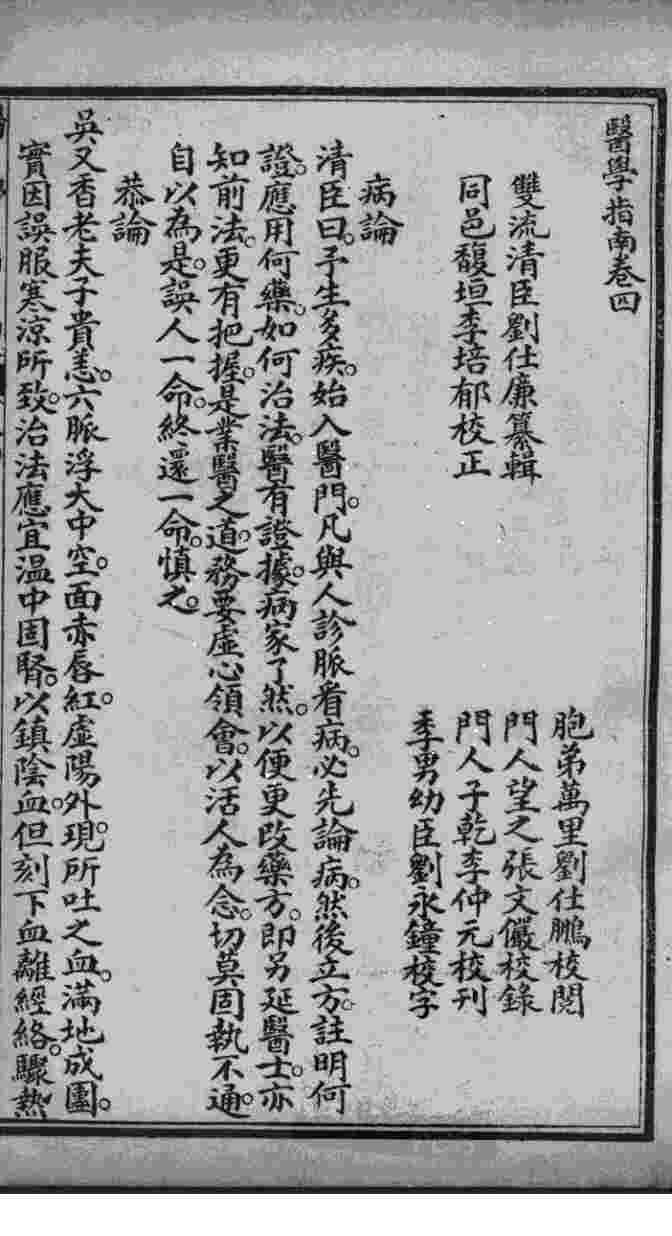 醫學指南卷四
雙流清臣劉仕廉纂輯
胞弟萬里劉仕鵬校閱
門人望之張文儼校錄
同邑馥垣李培郁校正
門人子乾李仲元校刊
季男幼臣劉永鐘校字
病論
清臣曰。予生多疾。始入醫門。凡與人診脈看病。必先論病。然後立方。註明何
證。應用何藥。如何治法。醫有證據。病家了然。以便更改藥方。即另延醫士。亦
知前法。更有把握。是業醫之道。務要虛心領會。以活人為念。切莫固執不通。
自以為是。誤人一命。終還一命。慎之。
恭論
吳又香老夫子貴恙。六脈浮大中空。面赤唇紅。虛陽外現。所吐之血。滿地成團。
實因誤服寒涼所致。治法應宜温中固腎。以鎮陰血。但刻下血離經絡。驟熱